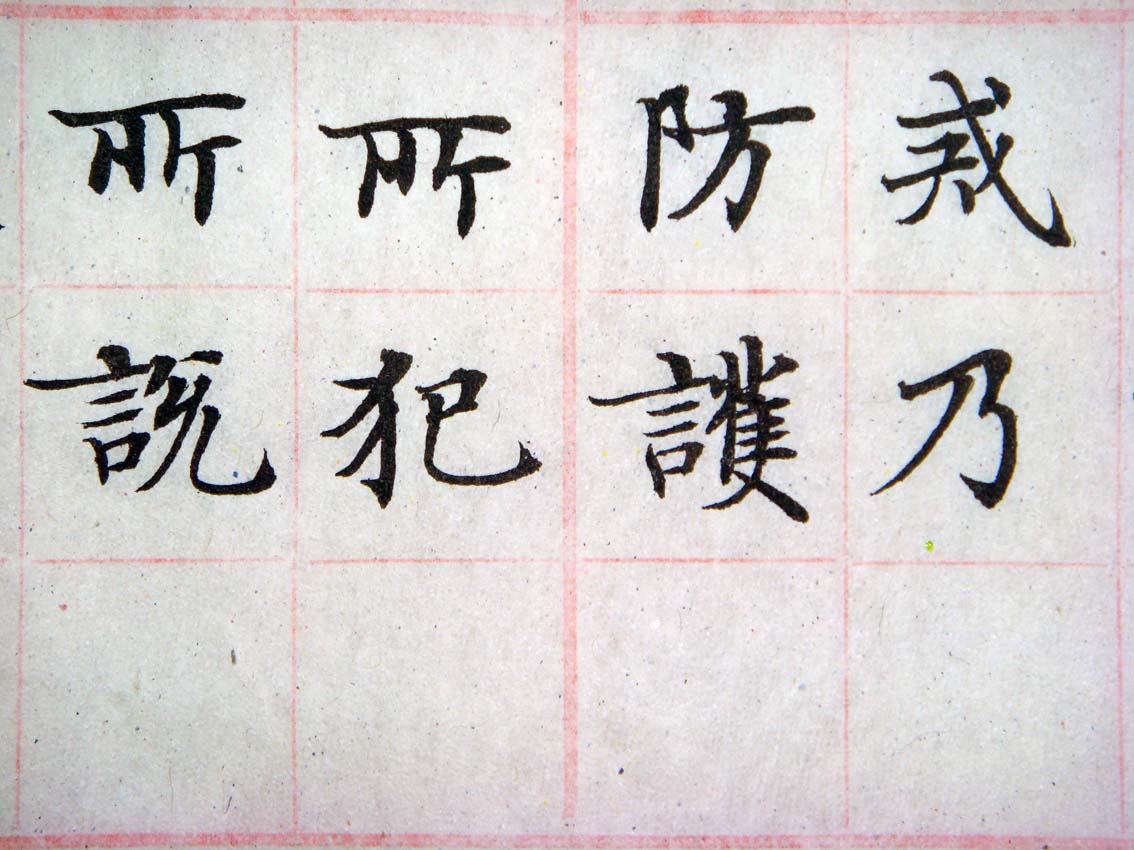 戒乃
防護
所犯
所説